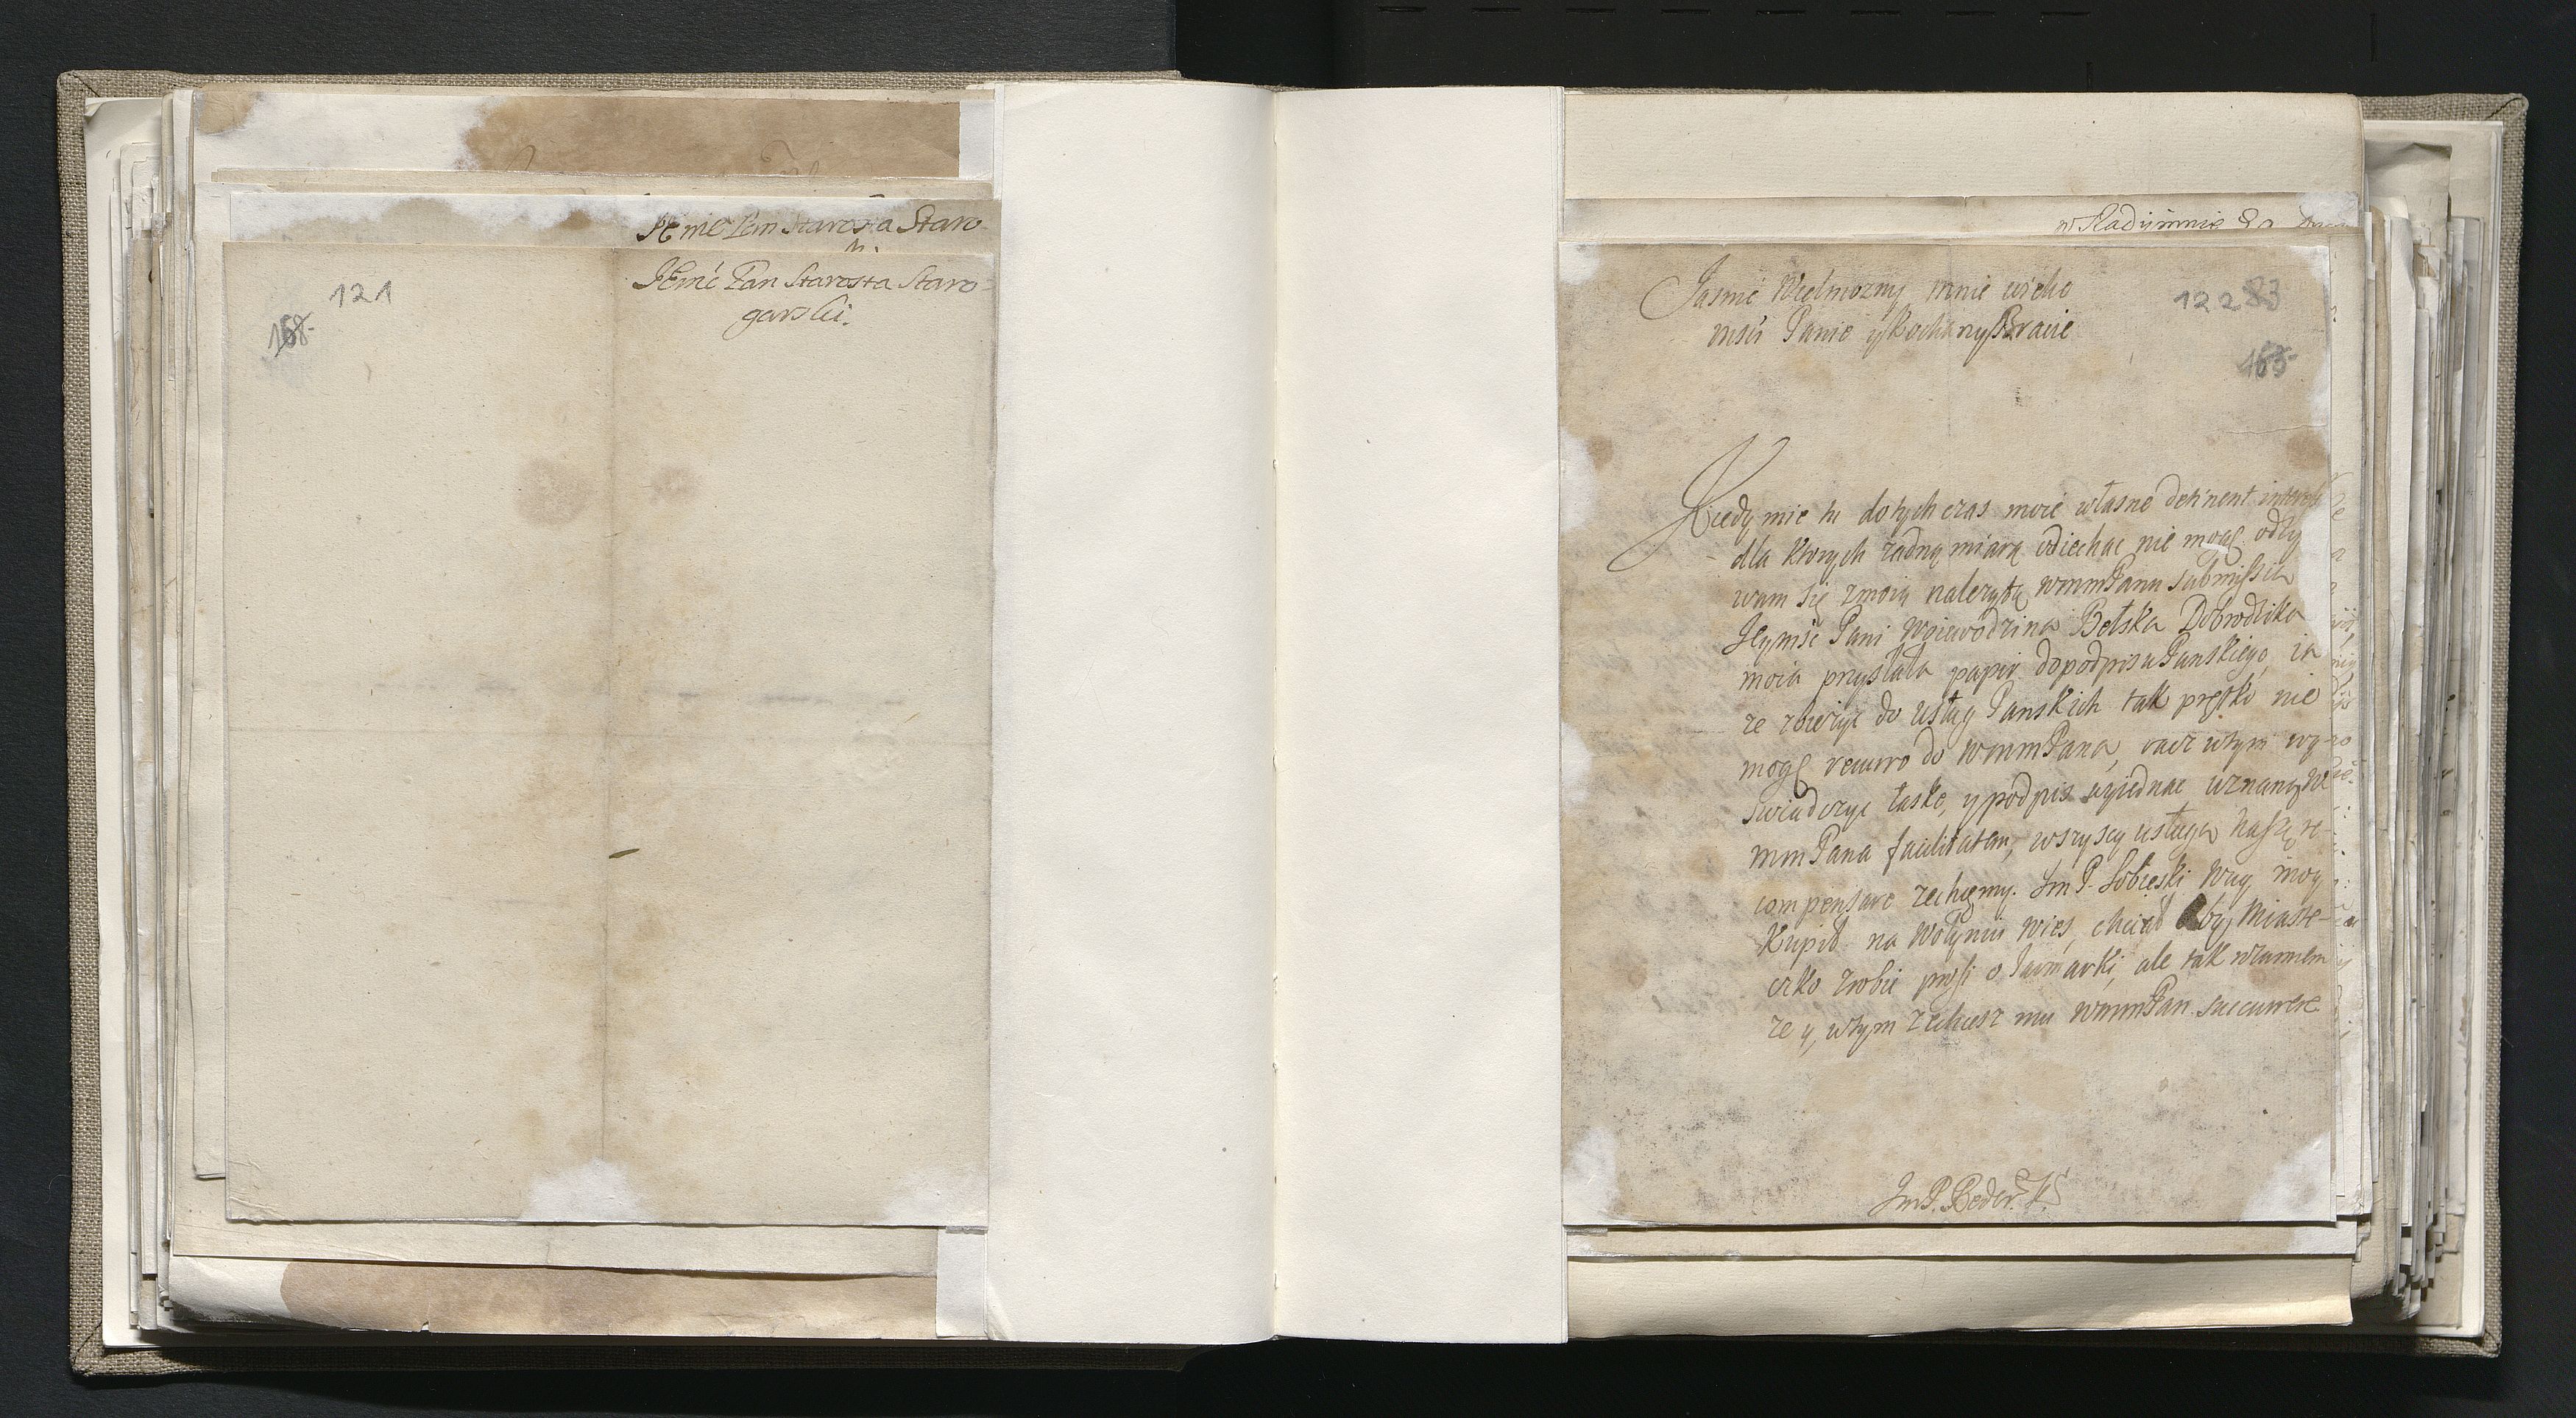 Jemć Pan Starosta Staro-
121
168
Jemć Pan Starosta Staro-
garski.
w Radÿmnie
Jasnie Wielmozny mnie wielce
msci Panie y kochany Bracie
122 83
Kiedy mie tu dotych czas moie własne detinent interess
dla ktorych zadną miarą odiechac nie mogę odzy
wam się z moią nalezytą wmmPanu submissią
Jeymsc Pani Woiewodzina Bełska Dobrodzika
moia przysłała papir do podpisu Panskiego, ia
ze zbiezyc do usług Panskich tak prętko nie
mogę recurro do WmmPana, racz wtym wy
swiadczyc łaske, y podpis wyiednac uznaną W
mmPana facilitatem, wszyscy usługą naszą re-
compensare zechcemy. Jm P. Sobieski Wuy moy
Kupił na Wołyniu wies, chciał by Miaste-
czko zrobic prosi o Jarmarki, ale tak
ze y wtym zechcesz mu WmmPan succurrere
JmP.